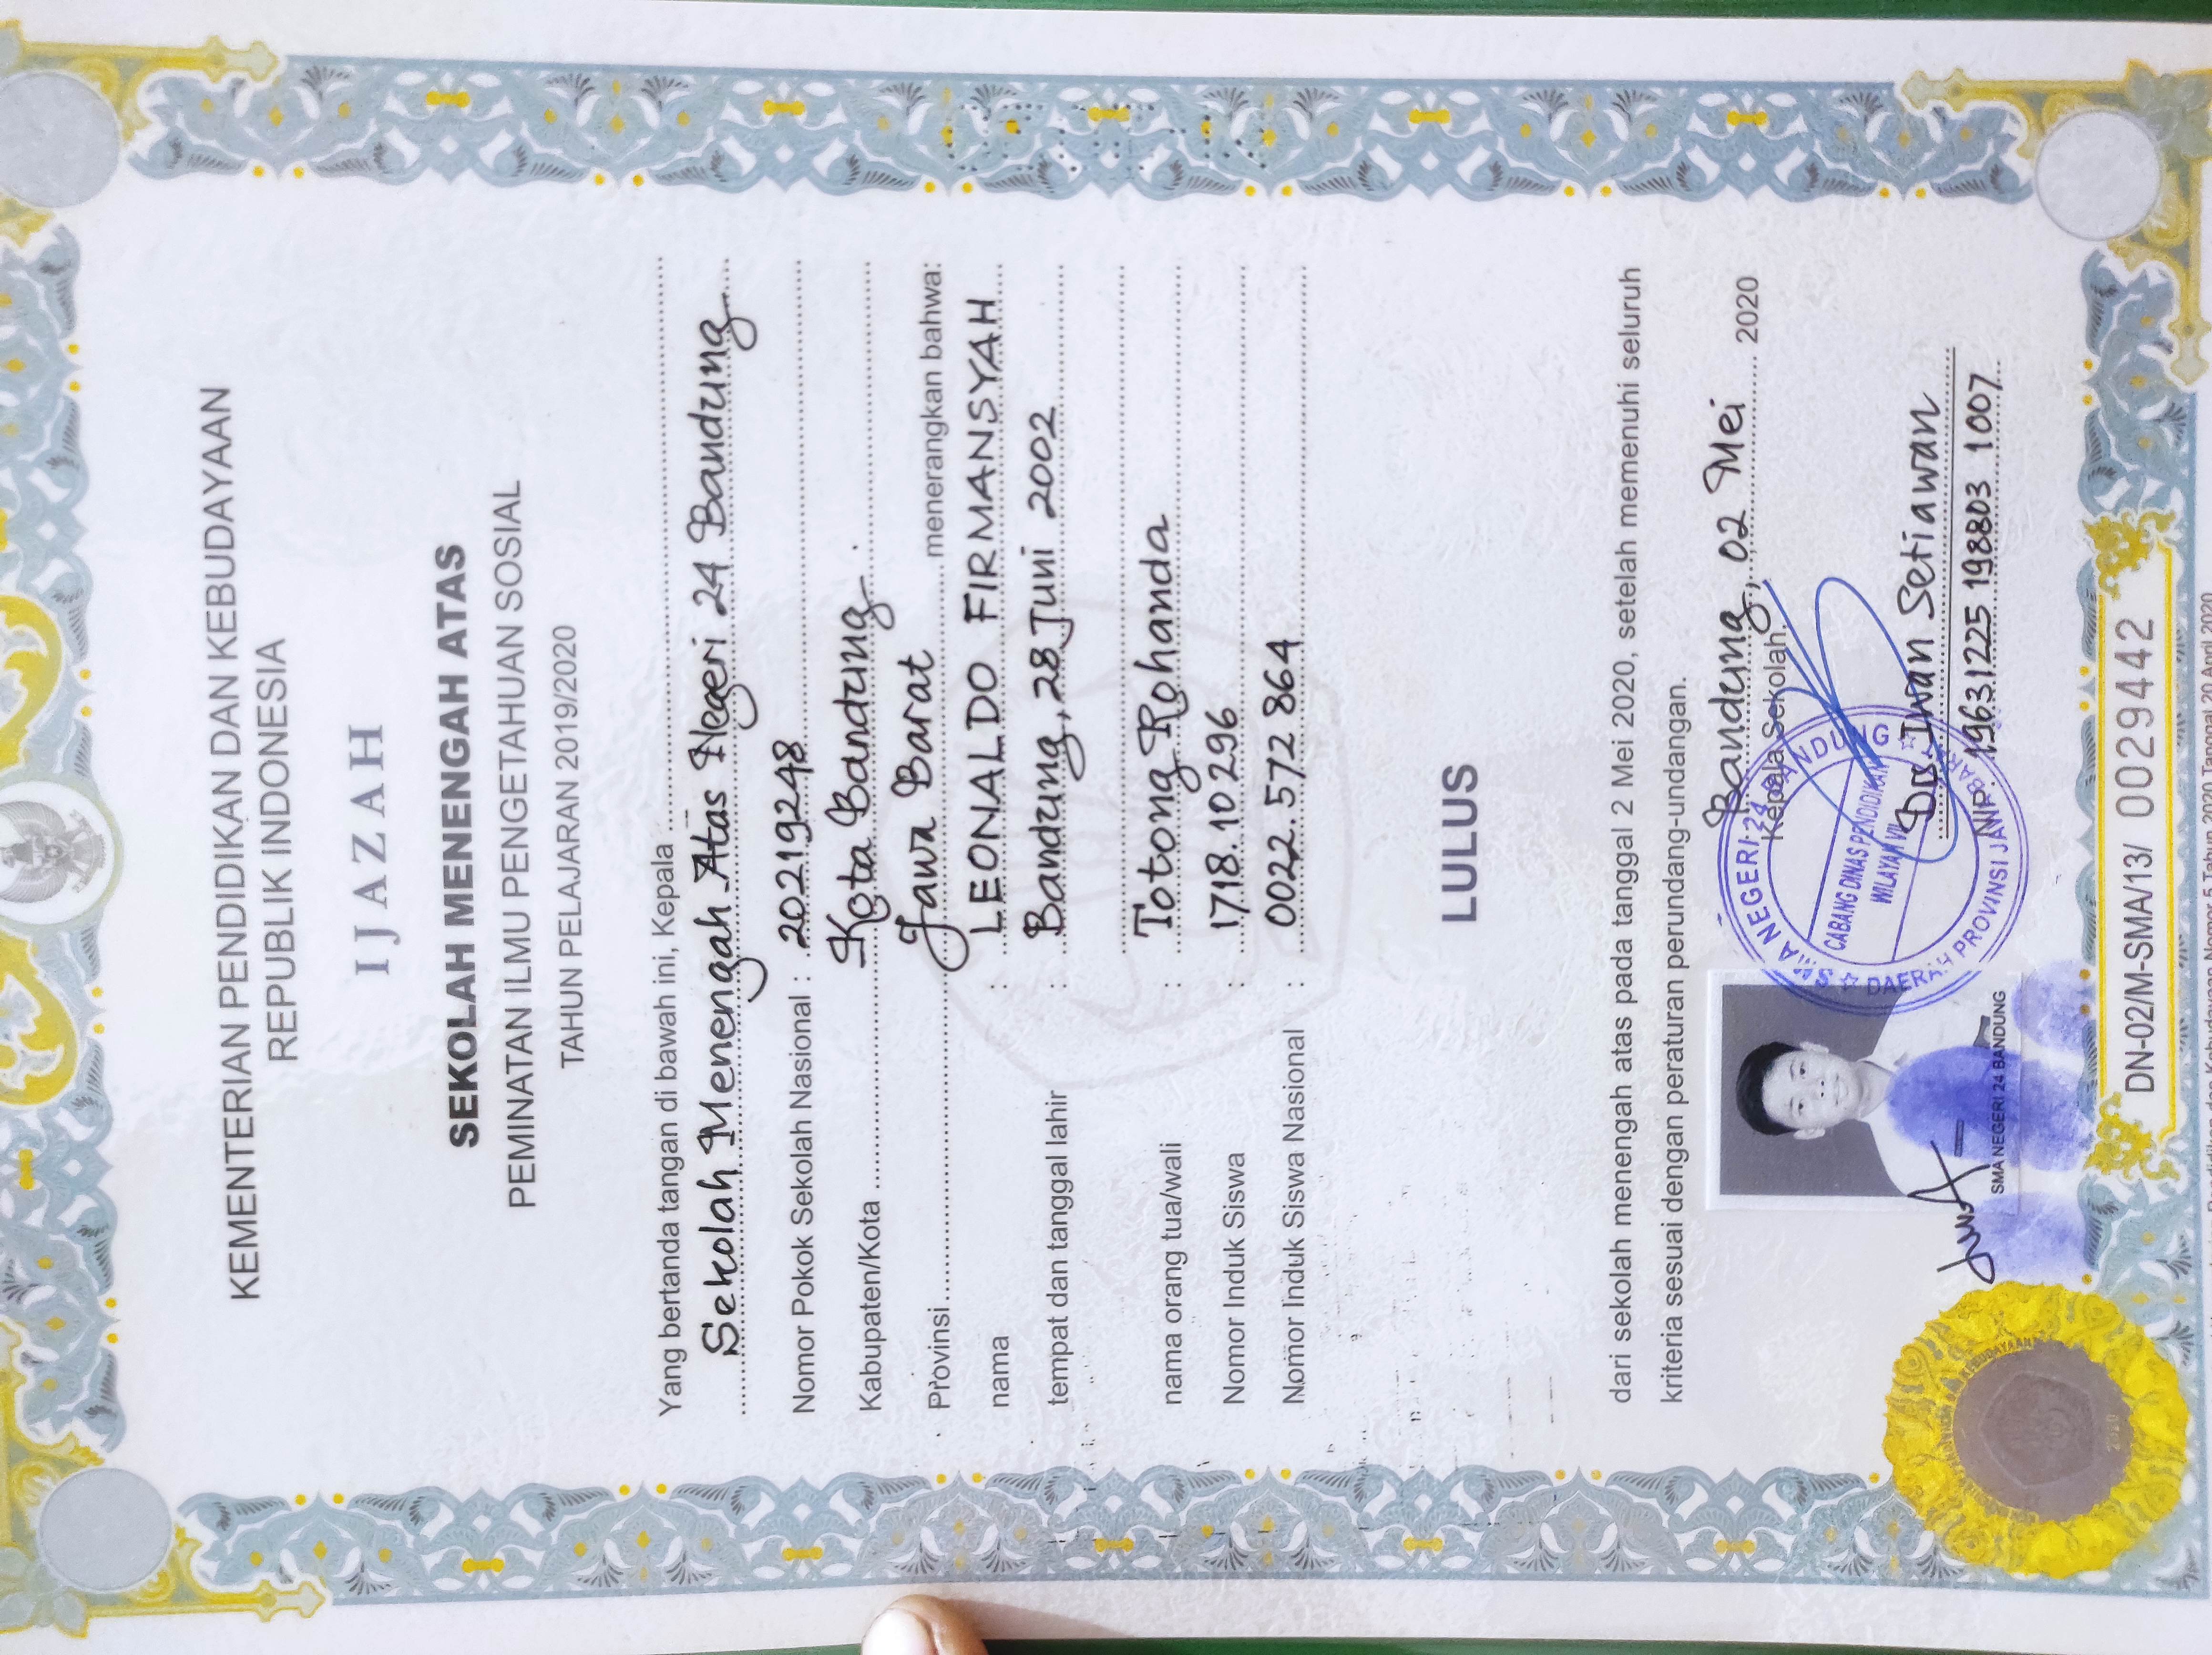 KEMENTERIAN PENDIDIKAN DAN KEBUDAYAAN
REPUBLIK INDONESIA
IJAZAH
SEKOLAH MENENGAH ATAS
PEMINATAN ILMU PENGETAHUAN SOSIAL
TAHUN PELAJARAN 2019/2020
Yang bertanda tangan di bawah ini, Kepala
Sekolah Menengah Atas Negeri 24 Bandung
Nomor Pokok Sekolah Nasional : 20219248
Kabupaten/Kota Kota Bandung
Provinsi Jawa Barat menerangkan bahwa:
nama : LEONALDO FIRMANSYAH
tempat dan tanggal lahir : Bandung, 28 Juni 2002
nama orang tua/wali : Totong Rohanda
Nomor Induk Siswa : 1718.10 296
Nomor Induk Siswa Nasional : 0022.572 864
LULUS
dari sekolah menengah atas pada tanggal 2 Mei 2020, setelah memenuhi seluruh
kriteria sesuai dengan peraturan perundang-undangan.
Bandung, 02 Mei 2020
Kepala Sekolah,
SMA NEGERI 24 BANDUNG
CABANG DINAS PENDIDIKAN
WILAYAH VII
DAERAH PROVINSI JAWA BARAT
Drs. Iwan Setiawan
NIP. 19631225 198803 1007
SMA NEGERI 24 BANDUNG
2020
DN-02/M-SMA/13/ 0029442
Pendidikan dan Kebudayaan Nomor 5 Tahun 2020 Tanggal 20 April 2020